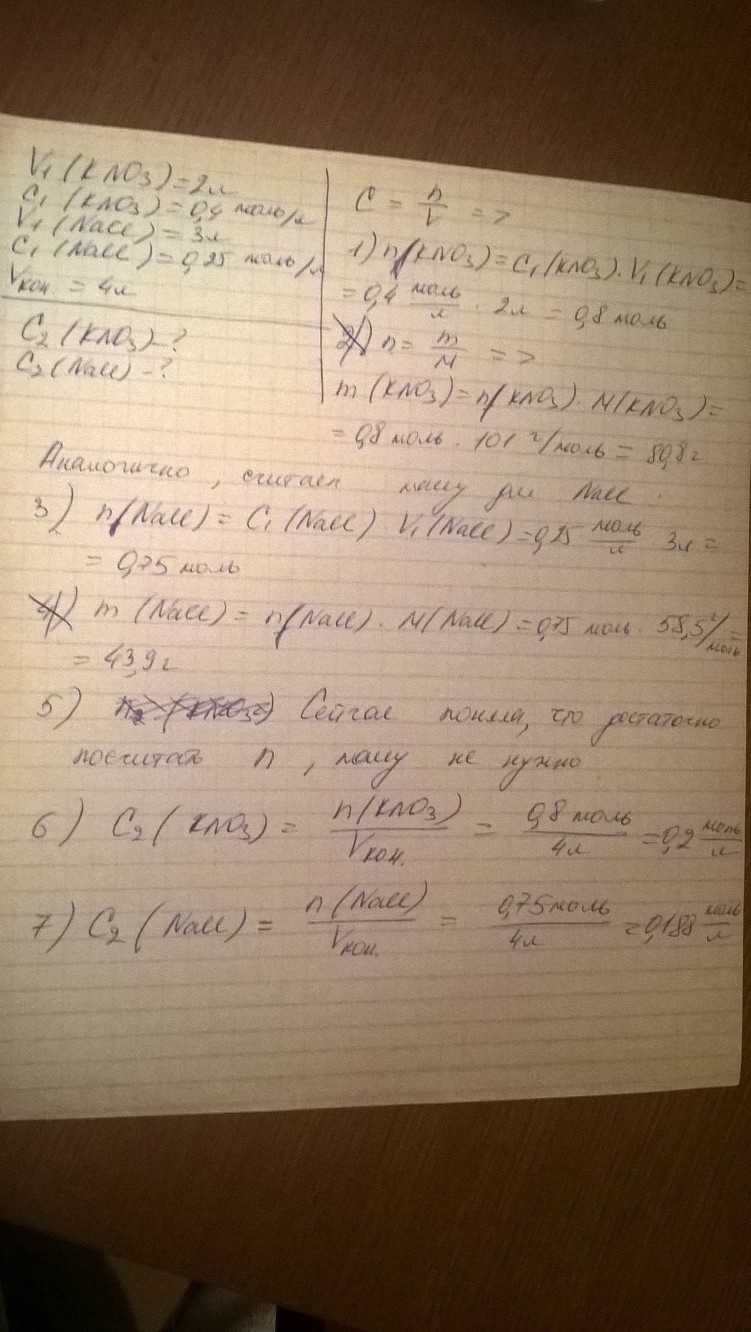 V₁(KNO₃) = 2л
C₁(KNO₃) = 0,4 моль/л
V₁(NaCl) = 3л
C₁(NaCl) = 0,25 моль/л
Vкон. = 4л
C₂(KNO₃) - ?
C₂(NaCl) - ?
C = n/V =>
1) n(KNO₃) = C₁(KNO₃) · V₁(KNO₃) =
= 0,4 моль/л · 2л = 0,8 моль
2) n = m/M =>
m(KNO₃) = n(KNO₃) · M(KNO₃) =
= 0,8 моль · 101 г/моль = 80,8 г
Аналогично, считаем массу для NaCl.
3) n(NaCl) = C₁(NaCl) · V₁(NaCl) = 0,25 моль/л · 3л =
= 0,75 моль
4) m(NaCl) = n(NaCl) · M(NaCl) = 0,75 моль · 58,5 г/моль =
= 43,9 г
5) Сейчас поняла, что достаточно
посчитать n, массу не нужно
6) C₂(KNO₃) = n(KNO₃)/Vкон. = 0,8 моль/4л = 0,2 моль/л
7) C₂(NaCl) = n(NaCl)/Vкон. = 0,75 моль/4л = 0,188 моль/л